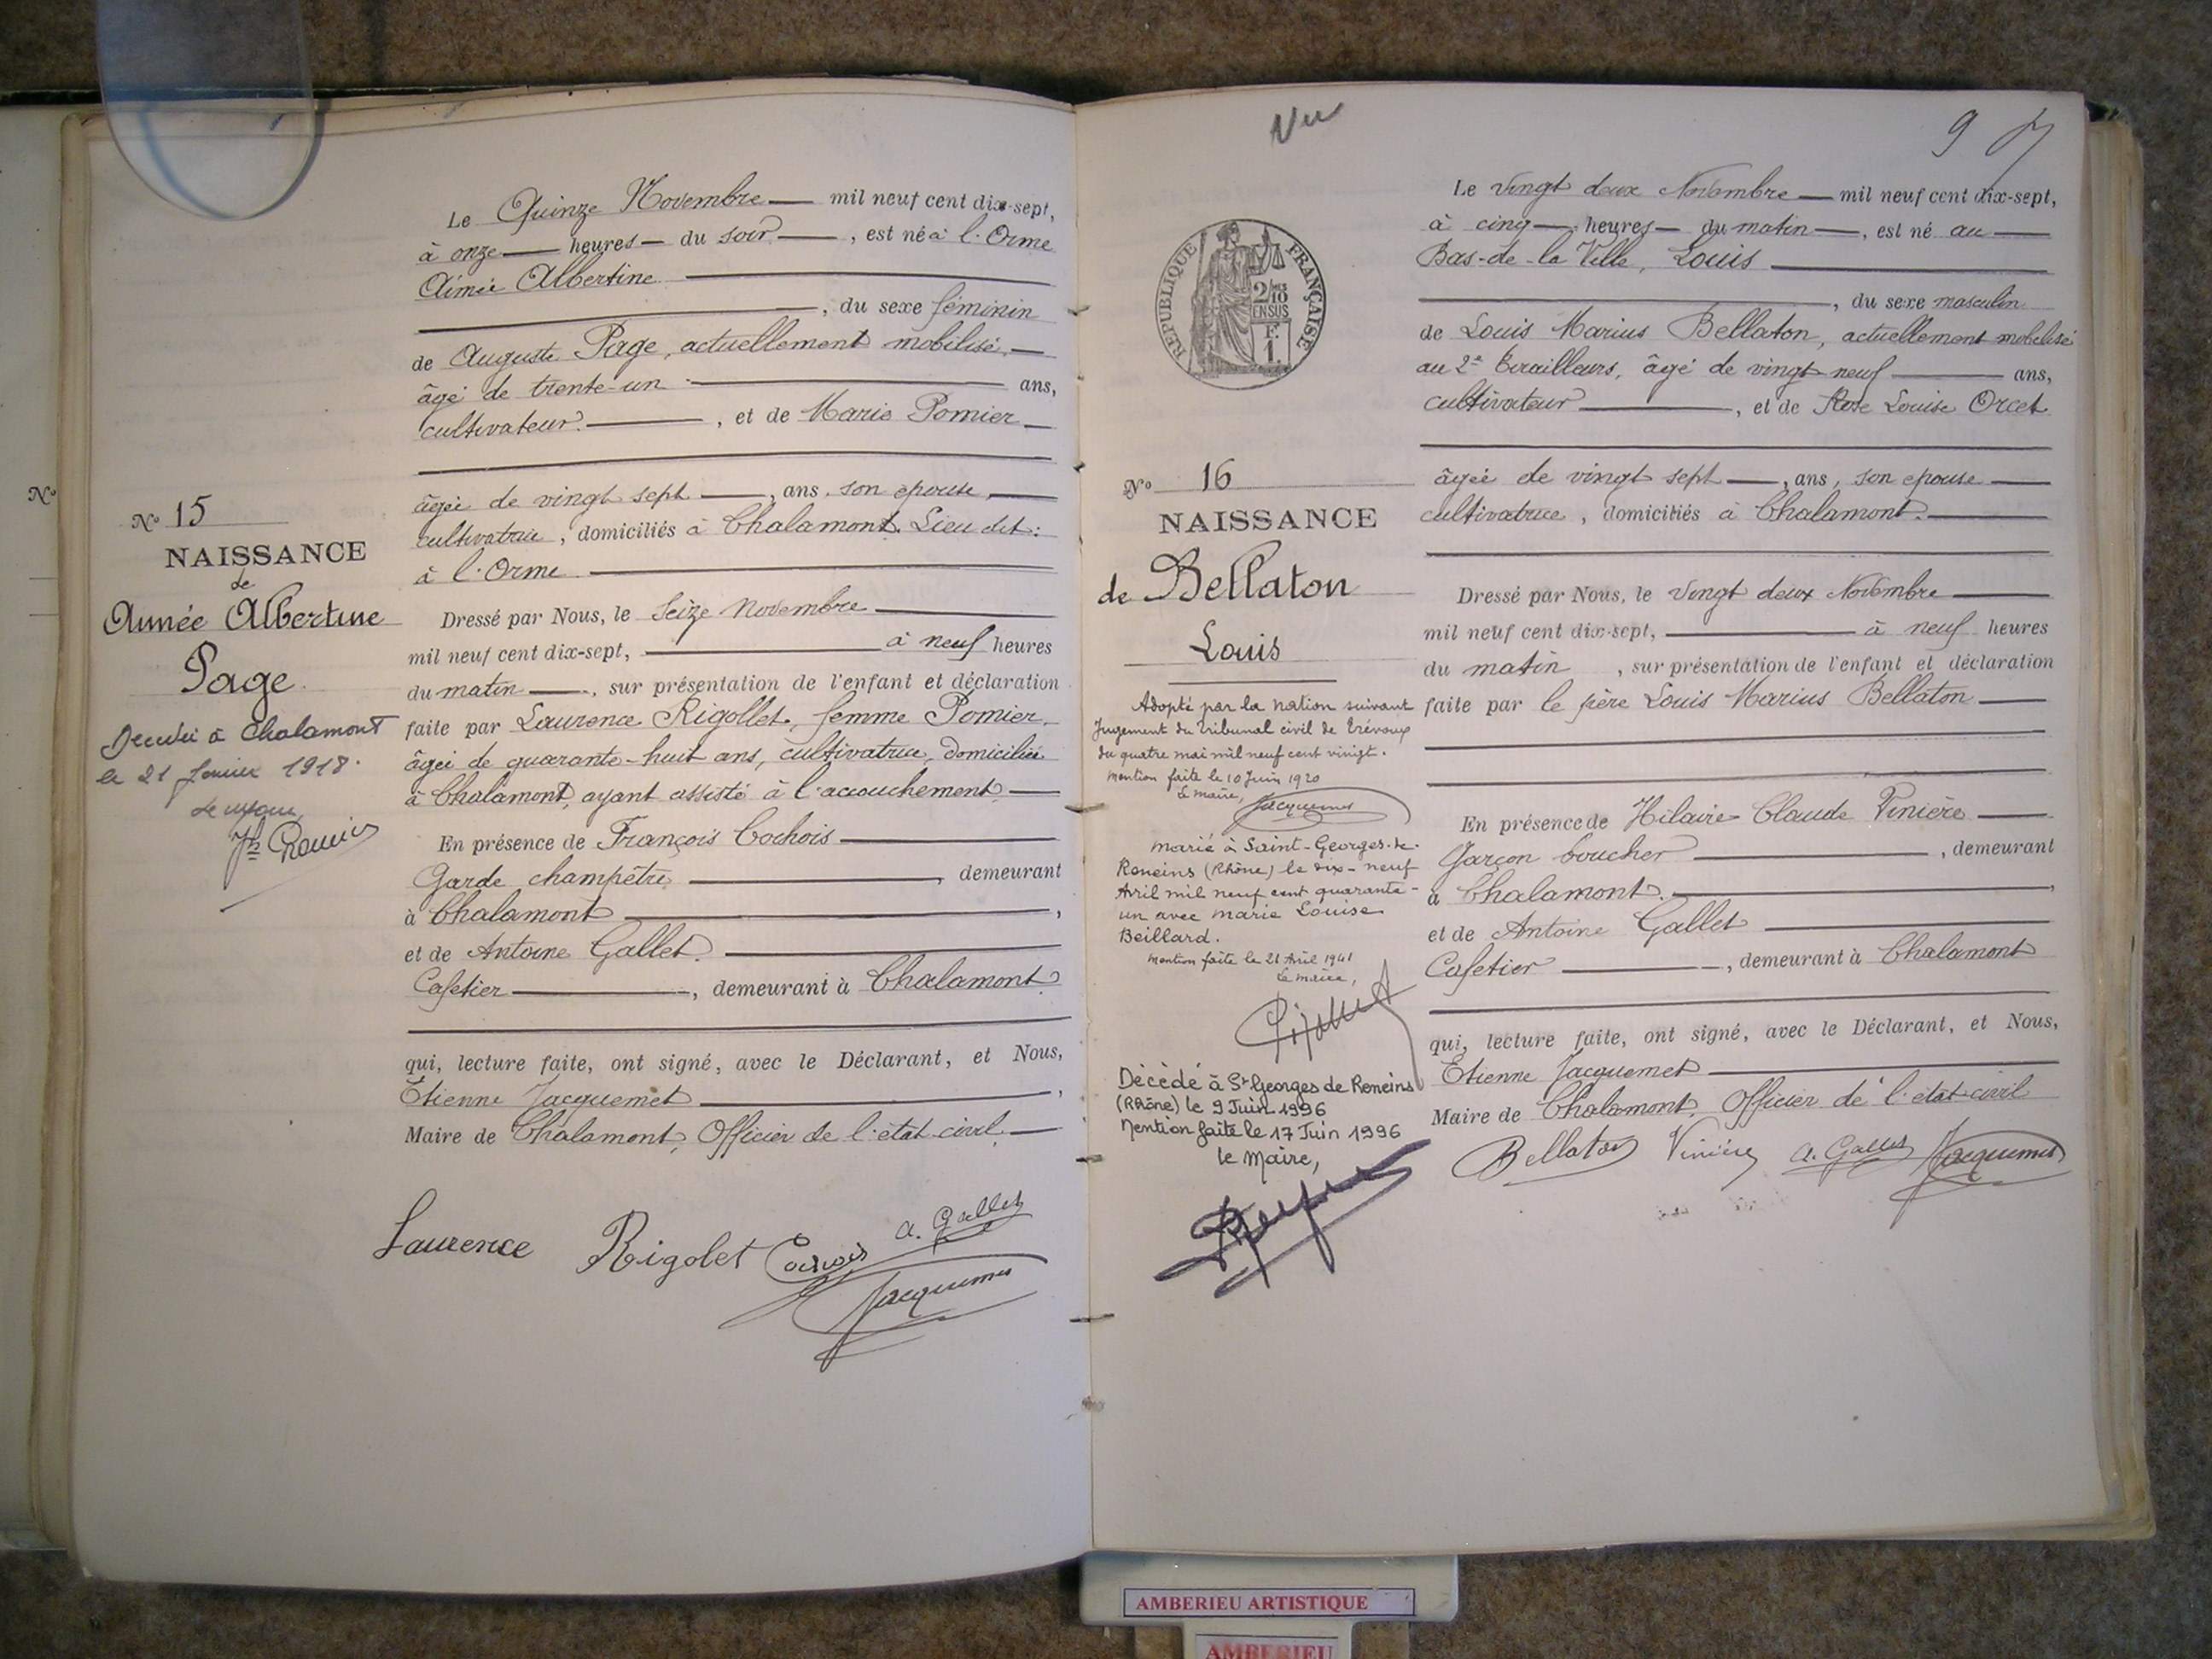 Le Quinze Novembre — mil neuf cent dix-sept,
à onze — heures — du soir —, est né à l'Orme
Aimée Albertine
, du sexe féminin
de Auguste Page, actuellement mobilisé, —
âgé de trente-un — ans,
cultivateur —, et de Marie Pomier —
âgée de vingt sept —, ans, son épouse, —
cultivatrice, domiciliés à Chalamont. Lieu dit:
à l'Orme —
Dressé par Nous, le Seize Novembre —
mil neuf cent dix-sept, — à neuf heures
du matin —, sur présentation de l'enfant et déclaration
faite par Laurence Rigollet, femme Pomier,
âgée de quarante-huit ans, cultivatrice, domiciliée
à Chalamont, ayant assisté à l'accouchement —
En présence de François Cochois —
Garde champêtre —, demeurant
à Chalamont —,
et de Antoine Gallet. —
Cafetier —, demeurant à Chalamont
qui, lecture faite, ont signé, avec le Déclarant, et Nous,
Etienne Jacquemet —,
Maire de Chalamont, Officier de l'état-civil. —
Laurence Rigolet Cochois a. Gallet
Jacquemet
N°
N° 15
NAISSANCE
de
Aimée Albertine
Page
Décédée à Chalamont
le 21 Janvier 1918.
Vu
9
REPUBLIQUE FRANÇAISE
2/10
EN SUS
F.
1.
N° 16
NAISSANCE
de Bellaton
Louis
Adopté par la nation suivant
Jugement du tribunal civil de Trévoux
du quatre mai mil neuf cent vingt.
Mention faite le 10 Juin 1920
Le maire,
Jacquemet
marié à Saint-Georges-de-
Reneins (Rhône) le dix-neuf
Avril mil neuf cent quarante-
un avec Marie Louise
Beillard.
Mention faite le 21 Avril 1941
Le maire,
Décédé à St Georges de Reneins
(Rhône) le 9 Juin 1996
Mention faite le 17 Juin 1996
le Maire,
Le vingt deux Novembre — mil neuf cent dix-sept,
à cinq — heures — du matin —, est né au —
Bas-de-la Ville, Louis —
, du sexe masculin
de Louis Marius Bellaton, actuellement mobilisé
au 2e Tirailleurs, âgé de vingt-neuf — ans,
cultivateur —, et de Rose Louise Orcet
âgée de vingt sept —, ans, son épouse —
cultivatrice, domiciliés à Chalamont. —
Dressé par Nous, le vingt deux Novembre —
mil neuf cent dix-sept, — à neuf heures
du matin, sur présentation de l'enfant et déclaration
faite par le père Louis Marius Bellaton —
En présence de Hilaire Claude Vinière —
Garçon boucher —, demeurant
à Chalamont. —,
et de Antoine Gallet —
Cafetier —, demeurant à Chalamont
qui, lecture faite, ont signé, avec le Déclarant, et Nous,
Etienne Jacquemet —
Maire de Chalamont, Officier de l'état-civil
Bellaton Vinière a. Gallet Jacquemet
AMBERIEU ARTISTIQUE
AMBERIEU